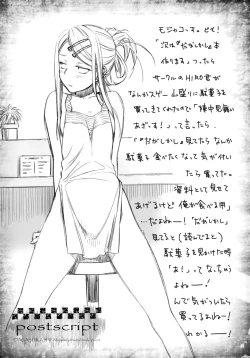 モジャコっす。ども!
「次は『だがしかし』本
作ります。」つったら
サークルのHIRO君が
なんかスゲー山盛りに駄菓子を
買ってきてくれたので「陣中見舞い
あざっす!」って言ったら
「『だがしかし』見てたらなんか
駄菓子食べたくなって気が付い
たら買ってた。
資料として見せて
あげるけど俺が食べる用」
…だよねー!「だがしかし」
見てると(読んでると)
駄菓子を見かけた時
「あ!」ってなっちゃう
よねー!
んで気がついたら
買ってるよねー!
わかるー!
postscript